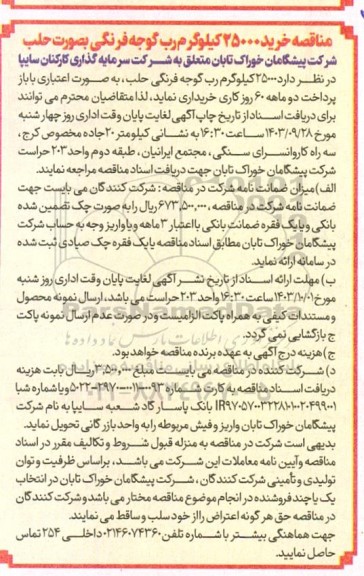 مناقصه خرید ۲۵۰۰۰ کیلوگرم رب گوجه فرنگی بصورت حلب
شرکت پیشگامان خوراک تابان متعلق به شرکت سرمایه گذاری کارکنان سایپا
در نظر دارد ۲۵۰۰۰ کیلوگرم رب گوجه فرنگی حلب، به صورت اعتباری با باز
پرداخت دو ماهه ۶۰ روز کاری خریداری نماید، لذا متقاضیان محترم می توانند
برای دریافت اسناد از تاریخ چاپ آگهی لغایت پایان وقت اداری روز چهار شنبه
مورخ ۱۴۰۳/۰۹/۲۸ ساعت ۱۶:۳۰ به نشانی کیلومتر ۲۰ جاده مخصوص کرج،
سه راه کاروانسرای سنگی، مجتمع ایرانیان، طبقه دوم واحد ۲۰۳ حراست
شرکت پیشگامان خوراک تابان جهت دریافت اسناد مناقصه مراجعه نمایند.
الف) میزان ضمانت نامه شرکت در مناقصه: شرکت کنندگان می بایست جهت
ضمانت نامه شرکت در مناقصه، ۶۷۳,۵۰۰,۰۰۰ ریال را به صورت چک تضمین شده
بانکی و یا یک فقره ضمانت بانکی با اعتبار ۳ ماهه و یا واریز وجه به حساب شرکت
پیشگامان خوراک تابان مطابق اسناد مناقصه یا یک فقره چک صیادی ثبت شده
در سامانه ارائه نماید.
ب) مهلت ارائه اسناد از تاریخ نشر آگهی لغایت پایان وقت اداری روز شنبه
مورخ ۱۴۰۳/۱۰/۰۱ ساعت ۱۶:۳۰ واحد ۲۰۳ حراست می باشد، ارسال نمونه محصول
و مستندات کیفی به همراه پاکت الزامیست و در صورت عدم ارسال نمونه پاکت
ج بازگشایی نمی گردد.
ج) هزینه درج آگهی به عهده برنده مناقصه خواهد بود.
د) شرکت کننده در مناقصه می بایست مبلغ ۳,۵۰۰,۰۰۰ ریال بابت هزینه
دریافت اسناد مناقصه به کارت شماره و یا شماره شبا
بانک پاسارگاد شعبه سایپا به نام شرکت
پیشگامان خوراک تابان واریز و فیش مربوطه را به واحد بازرگانی تحویل نماید.
بدیهی است شرکت در مناقصه به منزله قبول شروط و تکالیف مقرر در اسناد
مناقصه و آیین نامه معاملات این شرکت می باشد، براساس ظرفیت و توان
تولیدی و تأمینی شرکت کنندگان، شرکت پیشگامان خوراک تابان در انتخاب
یک یا چند فروشنده در انجام موضوع مناقصه مختار می باشد و شرکت کنندگان
در مناقصه حق هر گونه اعتراض را از خود سلب و ساقط می نمایند.
جهت هماهنگی بیشتر با شماره تلفن ۰۲۱۴۶۰۷۴۳۶۰ داخلی ۲۵۴ تماس
حاصل نمایید.